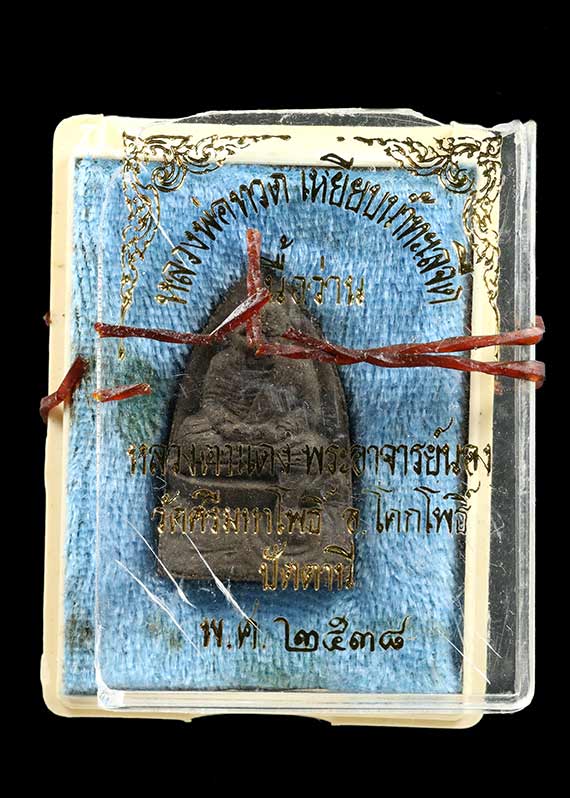 หลวงพ่อทวด เหยียบน้ำทะเลจืด
เนื้อว่าน
หลวงตาแดง พระอาจารย์นอง
วัดศรีมหาโพธิ์ อ.โคกโพธิ์
ปัตตานี
พ.ศ. ๒๕๓๘